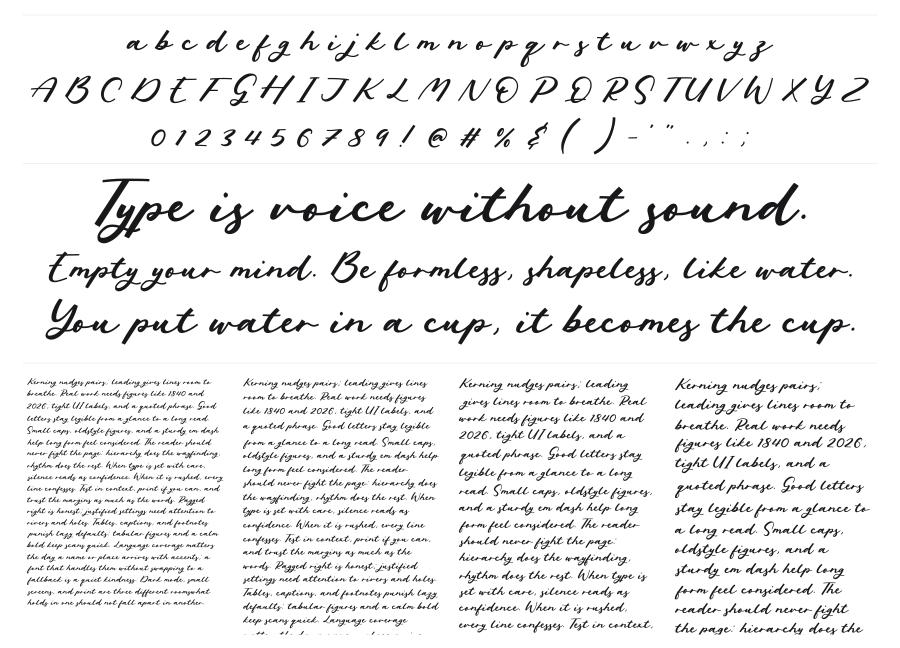 a b c d e f g h i j k l m n o p q r s t u v w x y z
A B C D E F G H I J K L M N O P Q R S T U V W X Y Z
0 1 2 3 4 5 6 7 8 9 ! @ # % & ( ) - ' " . , : ;
Type is voice without sound.
Empty your mind. Be formless, shapeless, like water.
You put water in a cup, it becomes the cup.
Kerning nudges pairs; leading gives lines room to
breathe. Real work needs figures like 1840 and
2026, tight UI labels, and a quoted phrase. Good
letters stay legible from a glance to a long read.
Small caps, oldstyle figures, and a sturdy em dash
help long form feel considered. The reader should
never fight the page; hierarchy does the wayfinding,
rhythm does the rest. When type is set with care,
silence reads as confidence. When it is rushed, every
line confesses. Test in context, print if you can, and
trust the margins as much as the words. Ragged
right is honest; justified settings need attention to
rivers and holes. Tables, captions, and footnotes
punish lazy defaults; tabular figures and a calm
bold keep scans quick. Language coverage matters
the day a name or place arrives with accents; a
font that handles them without swapping to a
fallback is a quiet kindness. Dark mode, small
screens, and print are three different rooms;what
holds in one should not fall apart in another.
Kerning nudges pairs; leading gives lines
room to breathe. Real work needs figures
like 1840 and 2026, tight UI labels, and
a quoted phrase. Good letters stay legible
from a glance to a long read. Small caps,
oldstyle figures, and a sturdy em dash help
long form feel considered. The reader
should never fight the page; hierarchy does
the wayfinding, rhythm does the rest. When
type is set with care, silence reads as
confidence. When it is rushed, every line
confesses. Test in context, print if you can,
and trust the margins as much as the
words. Ragged right is honest; justified
settings need attention to rivers and holes.
Tables, captions, and footnotes punish lazy
defaults; tabular figures and a calm bold
keep scans quick. Language coverage
Kerning nudges pairs; leading
gives lines room to breathe. Real
work needs figures like 1840 and
2026, tight UI labels, and a
quoted phrase. Good letters stay
legible from a glance to a long
read. Small caps, oldstyle figures,
and a sturdy em dash help long
form feel considered. The reader
should never fight the page;
hierarchy does the wayfinding,
rhythm does the rest. When type is
set with care, silence reads as
confidence. When it is rushed,
every line confesses. Test in context,
Kerning nudges pairs;
leading gives lines room to
breathe. Real work needs
figures like 1840 and 2026,
tight UI labels, and a
quoted phrase. Good letters
stay legible from a glance to
a long read. Small caps,
oldstyle figures, and a
sturdy em dash help long
form feel considered. The
reader should never fight
the page; hierarchy does the